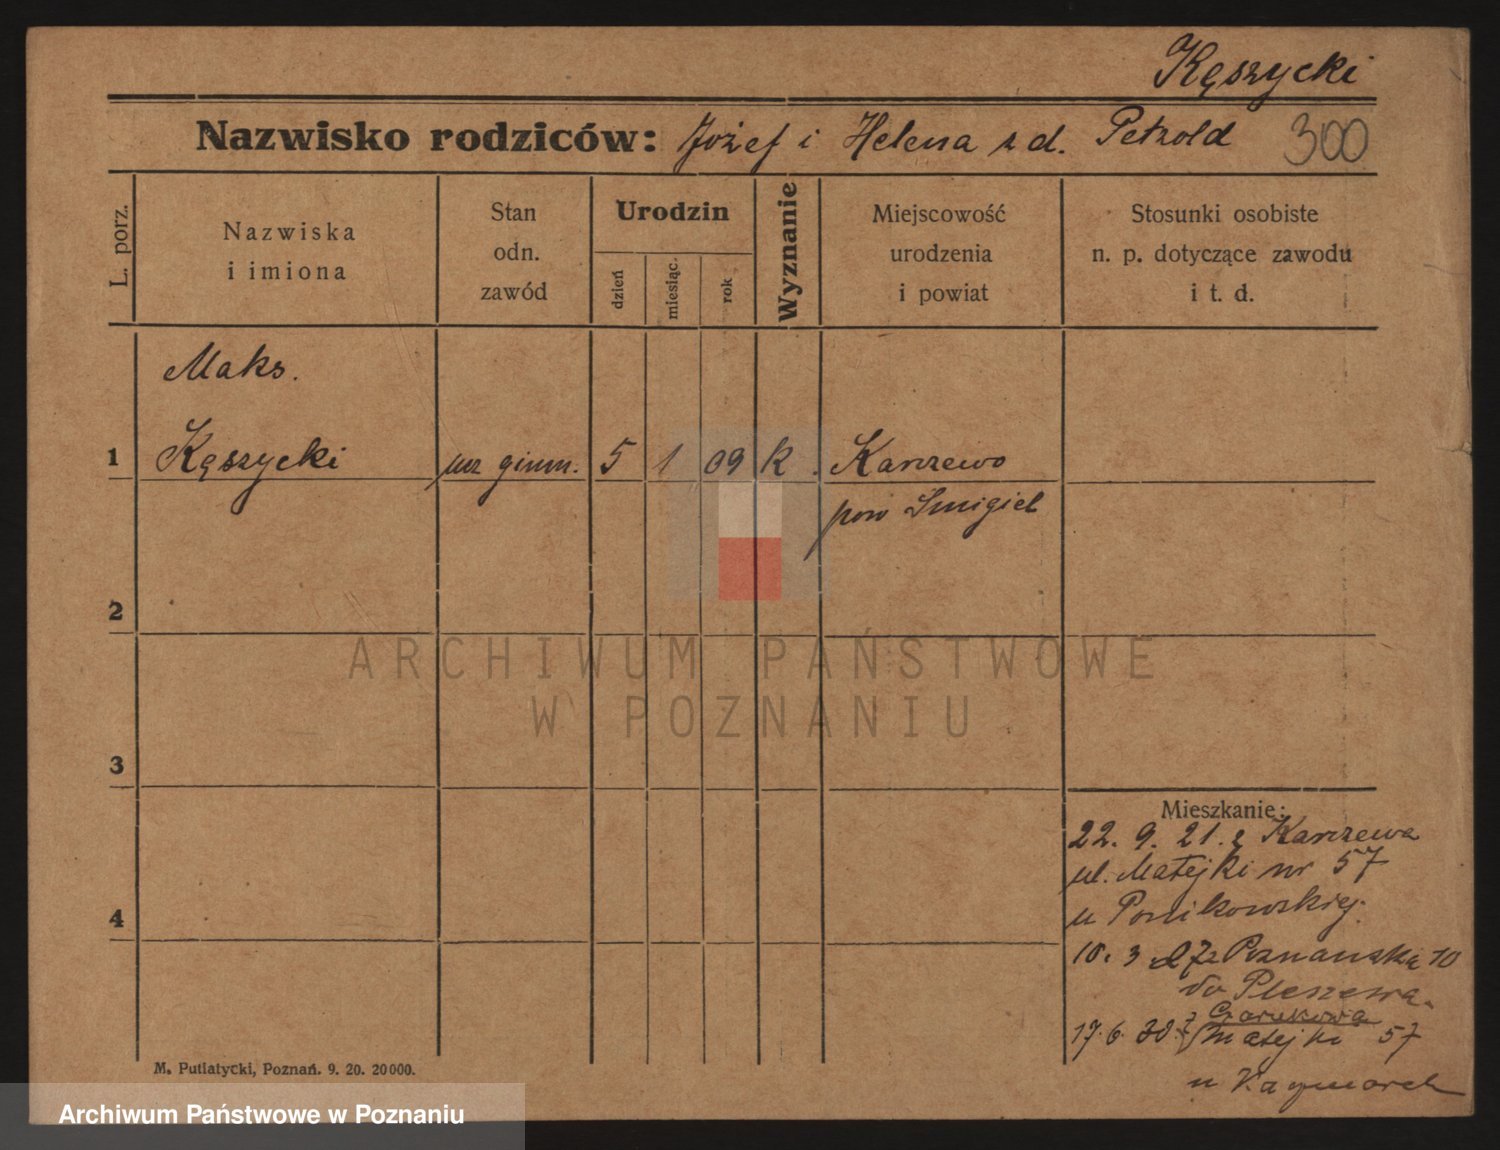 Kęszycki
Nazwisko rodziców: Józef i Helena z d. Petzold 300
L. porz.
Nazwiska
i imiona
Stan
odn.
zawód
Urodzin
dzień
miesiąc.
rok
Wyznanie
Miejscowość
urodzenia
i powiat
Stosunki osobiste
n. p. dotyczące zawodu
i t. d.
Maks.
1 Kęszycki ucz gimn. 5 1 09 k. Karczewo
pow Smigiel
2
ARCHIWUM PAŃSTWOWE
W POZNANIU
3
Mieszkanie:
22. 9. 21. z Karczewa
ul. Matejki nr 57
u Ponikowskiej.
4
10. 3 27 z Poznańska 10
do Pleszewa.
17. 6. 30. z
Matejki 57
u Kaczmarek
M. Putiatycki, Poznań. 9. 20. 20000.
Archiwum Państwowe w Poznaniu